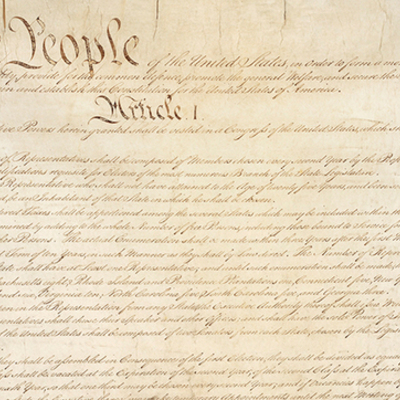 People of the United States, in Order to form a mo
ity, provide for the common defence, promote the general Welfare, and secure the
in and establish this Constitution for the United States of America.
Article. I.
ive Powers herein granted shall be vested in a Congress of the United States, which s
of Representatives shall be composed of Members chosen every second Year by the Peop
Qualifications requisite for Electors of the most numerous Branch of the State Legislature.
Representative who shall not have attained to the Age of twenty five Years, and been seven
be an Inhabitant of that State in which he shall be chosen.
Taxes shall be apportioned among the several States which may be included within th
ermined by adding to the whole Number of free Persons, including those bound to Service fo
other Persons. The actual Enumeration shall be made within three Years after the first M
Term of ten Years, in such Manner as they shall by Law direct. The Number of Repres
State shall have at Least one Representative; and until such enumeration shall be made,
achusetts eight, Rhode Island and Providence Plantations one, Connecticut five, New Y
land six, Virginia ten, North Carolina five, South Carolina five, and Georgia three.
pen in the Representation from any State, the Executive Authority thereof shall issue Writ
entatives shall chuse their Speaker and other Officers; and shall have the sole Power of I
the United States shall be composed of two Senators from each State, chosen by the Legisl
they shall be assembled in Consequence of the first Election, they shall be divided as equal
s shall be vacated at the Expiration of the second Year, of the second Class at the Expiration
sixth Year, so that one third may be chosen every second Year; and if Vacancies happen by
temporary Appointments until the next Meeting